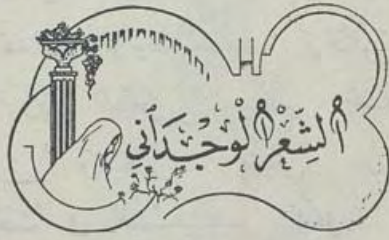 الشِّعْرُ الْوِجْدَانِي